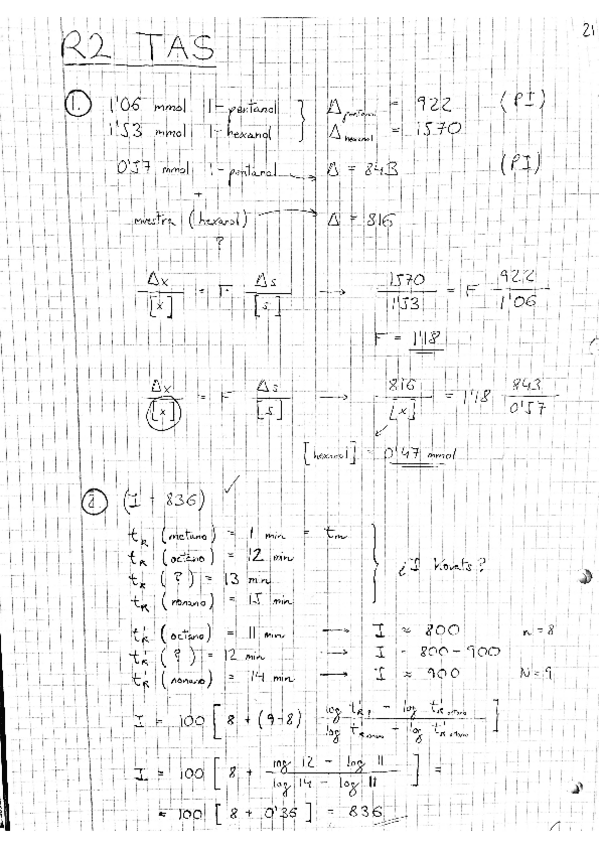 21
R2 TAS
1. 1'06 mmol 1-pentanol } Δpentanol = 922 (PI)
1'53 mmol 1-hexanol } Δhexanol = 1570
0'57 mmol 1-pentanol → Δ = 843 (PI)
+
muestra (hexanol) → Δ = 816
?
Δx/[x] = F Δs/[s] → 1570/1'53 = F 922/1'06
F = 1'18
Δx/[x] = F Δs/[s] → 816/[x] = 1'18 843/0'57
[hexanol] = 0'47 mmol
2. (I = 836) ✓
tR (metano) = 1 min = tm
tR (octano) = 12 min
tR (?) = 13 min } ¿I Kovats?
tR (nonano) = 15 min
t'R (octano) = 11 min → I ≈ 800 n=8
t'R (?) = 12 min → I - 800-900
t'R (nonano) = 14 min → I ≈ 900 N=9
I = 100 [8 + (9-8) (log t'R? - log t'R octano)/(log t'R nonano - log t'R octano)]
I = 100 [8 + (log 12 - log 11)/(log 14 - log 11)] =
= 100 [8 + 0'36] = 836